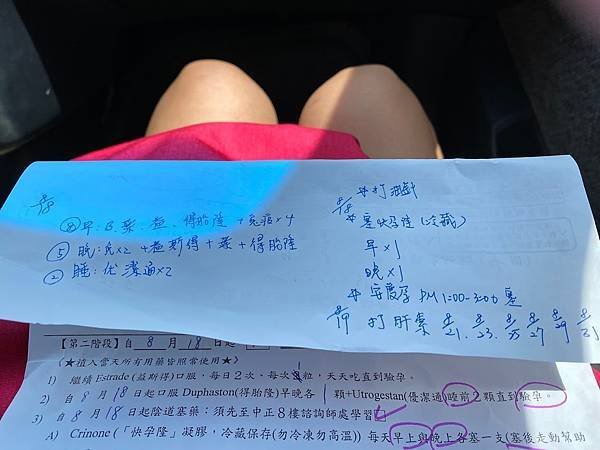 8/18
⑧早:B、葉、益、得胎隆+免疫×4
⑤晚:免×2+益斯得+葉+得胎隆
②睡:优潔通×2
*打油針
8/18
*塞快孕隆(冷藏)
早×1
晚×1
*安度孕 PM 1:00-3:00塞
8/19 打肝素 8/21. 8/23. 8/25 8/27 8/29 8/31
【第二階段】自 8 月 18 日起
〈★植入當天所有用藥皆照常使用★〉
1) 繼續Estrade(益斯得)口服,每日2次,每次1粒,天天吃直到驗孕。
2) 自 8 月 18 日起口服 Duphaston(得胎隆)早晚各1顆+Utrogestan(優潔通)睡前2顆直到驗孕。
3) 自 8 月 18 日起陰道塞藥:須先至中正8樓諮詢師處學習
A) Crinone (「快孕隆」凝膠,冷藏保存(勿冷凍勿高溫)) 每天早上與晚上各塞一支(塞後走動幫助